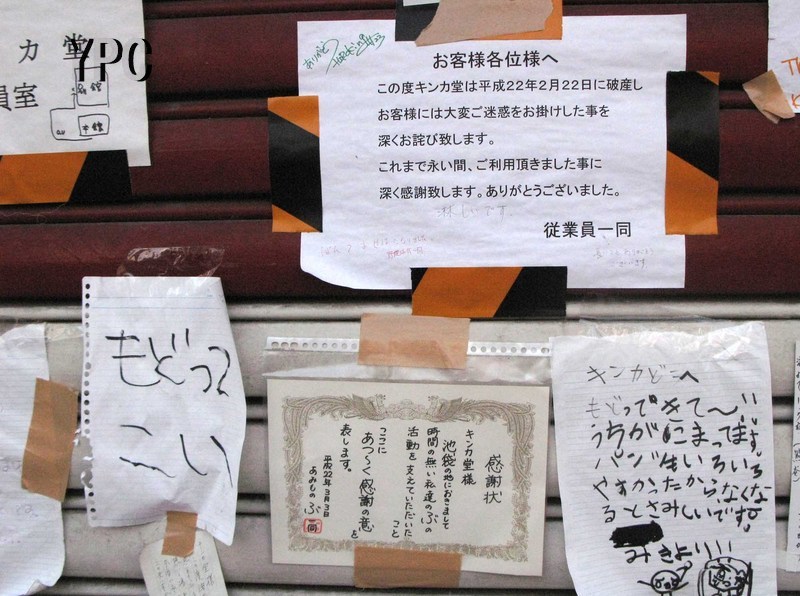 カ堂
YPC
員室
別館
本館
ありがとう
お客様各位様へ
この度キンカ堂は平成22年2月22日に破産し
お客様には大変ご迷惑をお掛けした事を
深くお詫び致します。
これまで永い間、ご利用頂きました事に
深く感謝致します。ありがとうございました。
淋しいです。
従業員一同
もどって
こい
感謝状
キンカ堂様
池袋の地におきまして
時間の無い私達のぶの
活動を支えていただいたこと
ここに
あつ〜く感謝の意を
表します。
平成22年3月3日
あみものぶ
キンカどーへ
もどってきて〜!!
うちがにまってます。
パンツ生いろいろ
やすかったから、なくな
るとさみしいです。
みきより!!!